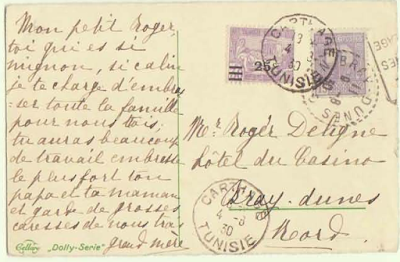 Mon petit Roger,
toi qui es si
mignon, si calin
je te charge d'embras
-ser toute la famille
pour nous trois,
tu auras beaucoup
de travail embrasse
le plus fort ton
papa et ta maman
et garde de grosses
caresses de nous trois
grand mère
"Dolly-Serie"
25
CARTHAGE
4-8
30
TUNISIE
Mr Roger Deligne
hôtel du Casino
Bray-dunes
Nord.
CARTHAGE
4-8
30
TUNISIE